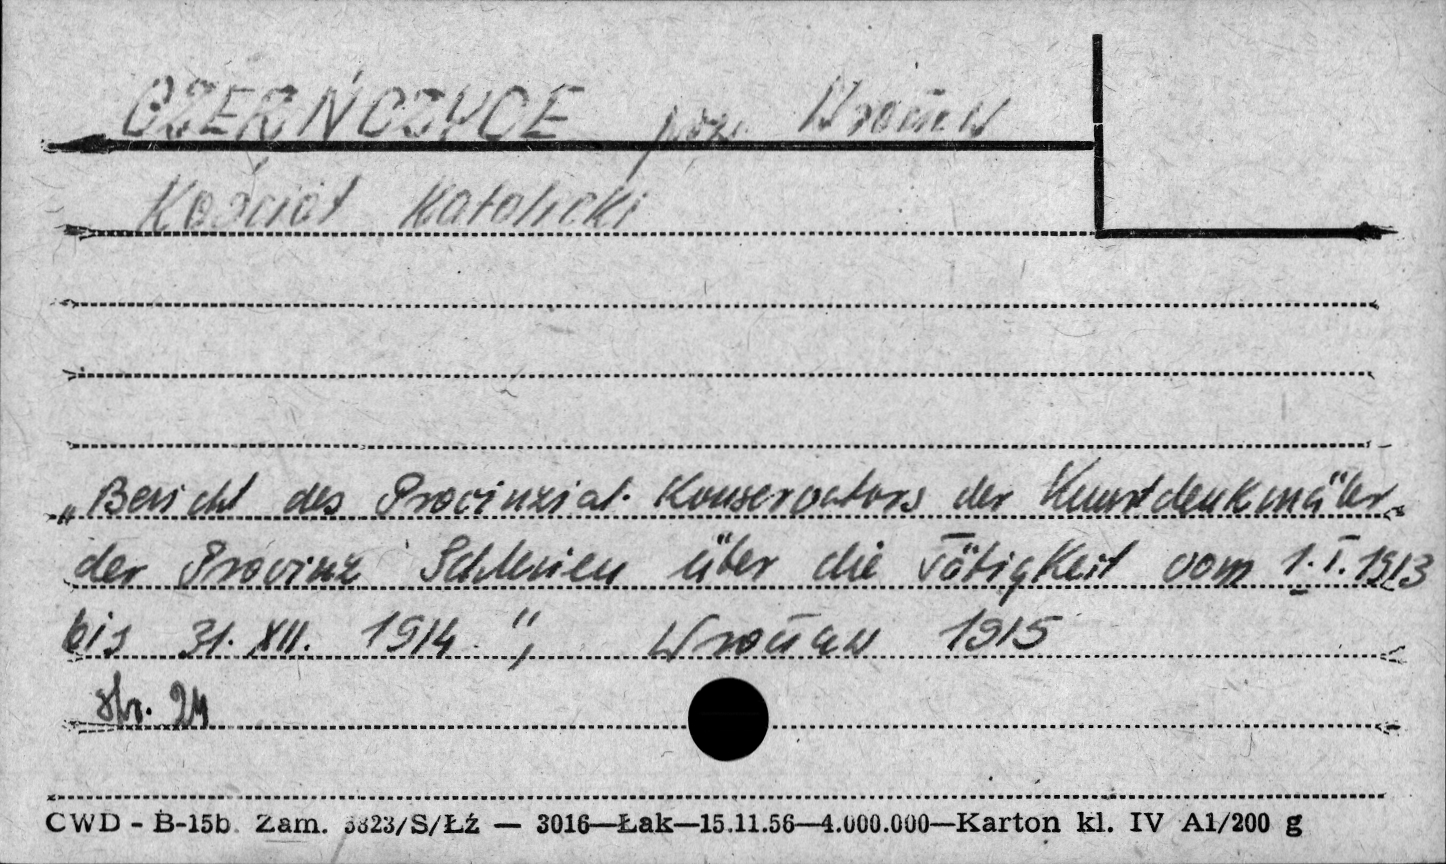 CZERŃCZYCE pow. Wrocław
Kościół Katolicki
„Bericht des Provinzial-Konservators der Kunstdenkmäler
der Provinz Schlesien über die Tätigkeit vom 1.I.1913
bis 31.XII.1914", Wrocław 1915
str. 24
CWD - B-15b Zam. 3823/S/ŁŹ — 3016—Łak—15.11.56—4.000.000—Karton kl. IV A1/200 g